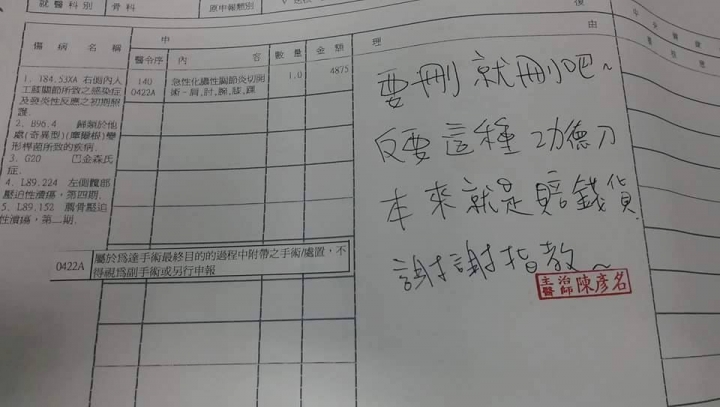 就醫科別 骨科 原申報類別
傷病名稱 申 理 由 復
醫令序 內容 數量 金額
1. T84.53XA 右側內人
工膝關節所致之感染症
及發炎性反應之初期照
護.
140 急性化膿性關節炎切開 1.0 4875
0422A 術-肩,肘,腕,膝,踝
2. B96.4 歸類於他
處(奇異型)(摩根)變
形桿菌所致的疾病.
3. G20 巴金森氏
症.
4. L89.224 左側髖部
壓迫性潰瘍,第四期.
5. L89.152 薦骨壓迫
性潰瘍,第二期.
0422A 屬於為達手術最終目的的過程中附帶之手術/處置,不
得視為副手術或另行申報
要刪就刪吧~
反要這種功德刀
本來就是賠錢貨
謝謝指教~
主治醫師 陳彥名